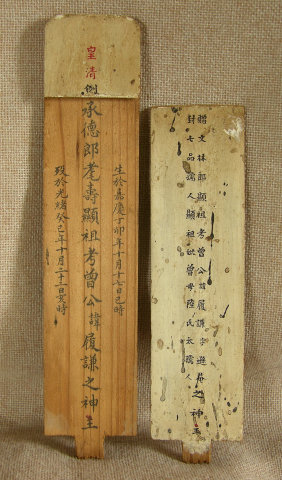 皇清
例
承德郎耄壽顯祖考曾公諱履謙之神主
生於嘉慶丁卯年十月十七日巳時
歿於光緒癸巳年十月二十三日亥時
贈文林郎顯祖考曾公諱履謙字遜舟
封七品孺人顯祖妣曾母陸氏太孺人
之神主